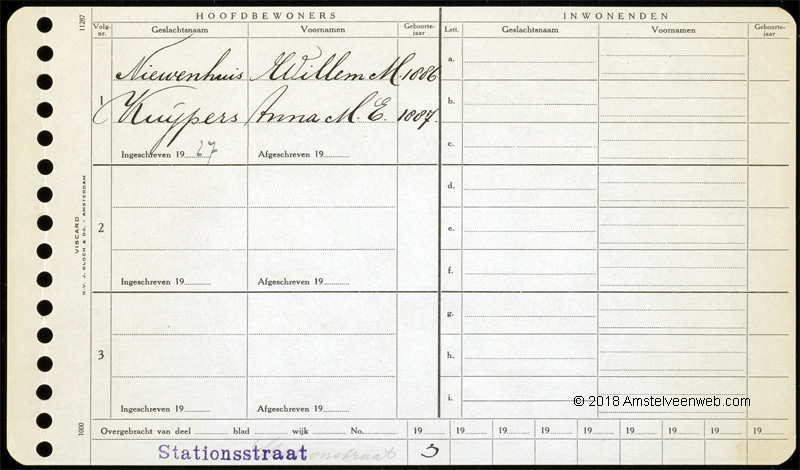 HOOFDBEWONERS INWONENDEN
Volg-nr. Geslachtsnaam Voornamen Geboorte-jaar Lett. Geslachtsnaam Voornamen Geboorte-jaar
11287
Niewenhuis Willem M. 1886
1
Kuÿpers Anna M. E. 1887.
Ingeschreven 1927 Afgeschreven 19
a.
b.
c.
2
Ingeschreven 19 Afgeschreven 19
d.
e.
f.
3
Ingeschreven 19 Afgeschreven 19
g.
h.
i.
VISCARD
N.V. J. BLOCH & Co. - AMSTERDAM
1000
© 2018 Amstelveenweb.com
Overgebracht van deel blad wijk No. 19 19 19 19 19 19 19 19 19
Stationsstraat 3